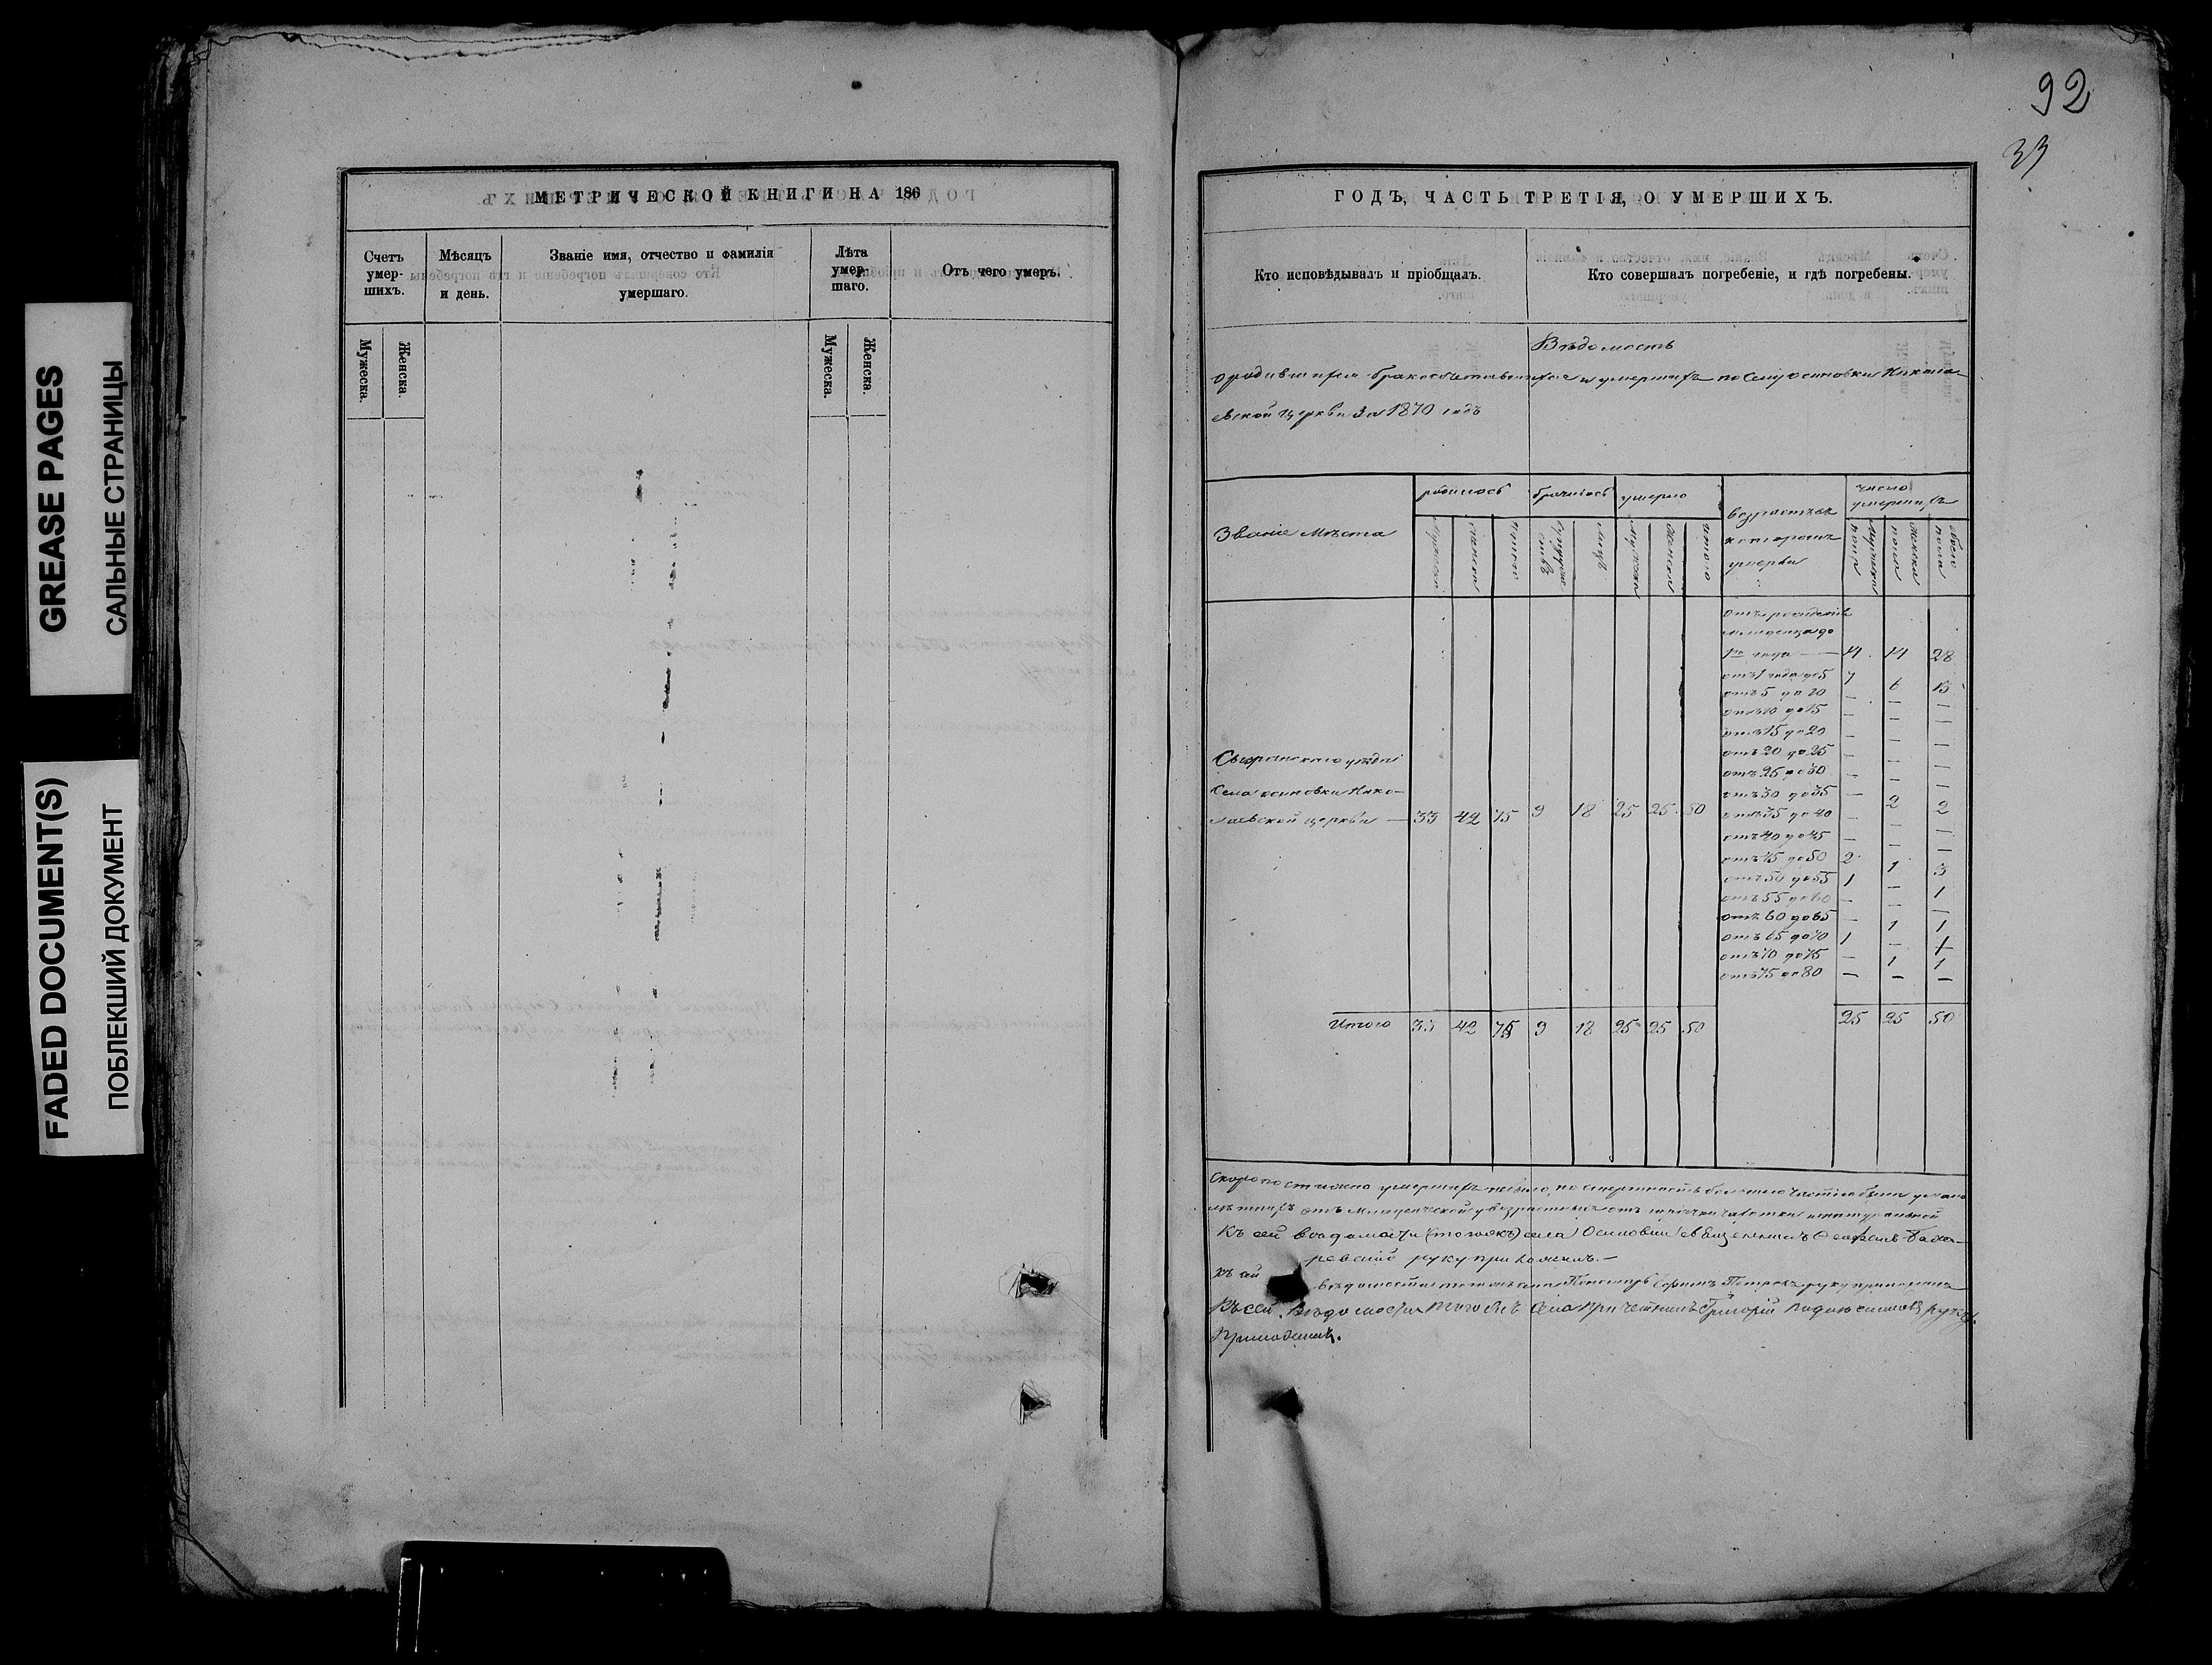 GREASE PAGES
САЛЬНЫЕ СТРАНИЦЫ
FADED DOCUMENT(S)
ПОБЛЕКШИЙ ДОКУМЕНТ
МЕТРИЧЕСКОЙ КНИГИ НА 186
Счетъ умер-шихъ.
Мѣсяцъ и день.
Званіе имя, отчество и фамилія
умершаго.
Лѣта умер-шаго.
Отъ чего умеръ.
Мужеска.
Женска.
Мужеска.
Женска.
92
33
ГОДЪ, ЧАСТЬ ТРЕТІЯ, О УМЕРШИХЪ.
Кто исповѣдывалъ и пріобщалъ.
Кто совершалъ погребеніе, и гдѣ погребены.
Вѣдомость
о родившихся бракосочетавшихся и умершихъ по селу Осиновки Никола-
евской церкви за 1870 годъ
Званіе мѣста
родилось
умерло
возрастъ въ
которомъ
умерли
число
умершихъ
отъ рожденія
младенца до
1го года — 14 14 28
отъ 1 года до 5 7 6 13
отъ 5 до 10 — — —
отъ 10 до 15 — — —
отъ 15 до 20 — — —
отъ 20 до 25 — — —
отъ 25 до 30 — — —
отъ 30 до 35 — 2 2
отъ 35 до 40 — — —
отъ 40 до 45 — — —
отъ 45 до 50 2 1 3
отъ 50 до 55 1 — 1
отъ 55 до 60 — — —
отъ 60 до 65 — 1 1
отъ 65 до 70 1 — 1
отъ 70 до 75 — 1 1
отъ 75 до 80 — — —
Сызранскаго уѣзда
села Осиновки Нико-
лаевской церкви — 33 42 75 9 18 25 25 50
Итого 33 42 75 9 18 25 25 50
25 25 50
Скоропостижно умершихъ не было, но смертность большею частію была
отъ младенческой
Къ сей вѣдомости (того жъ) села Осиновки священникъ
руку приложилъ.—
Къ сей вѣдомости того жъ села Петровъ руку приложилъ
Къ сей Вѣдомости того жъ села причетникъ Григорій руку
приложилъ.